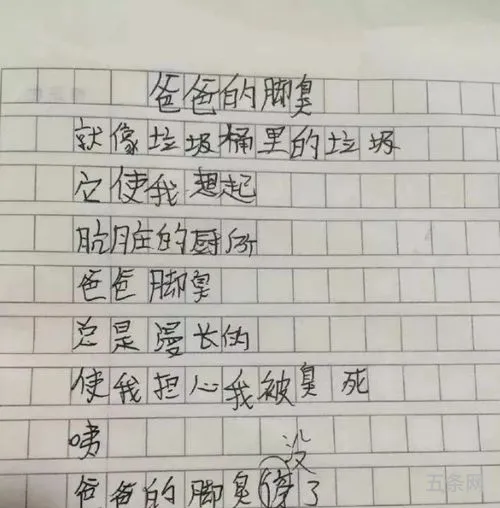 爸爸的脚臭
就像垃圾桶里的垃圾
它使我想起
肮脏的厨所
爸爸脚臭
总是漫长的
使我担心我被臭死
咦
没
爸爸的脚臭了
五条网